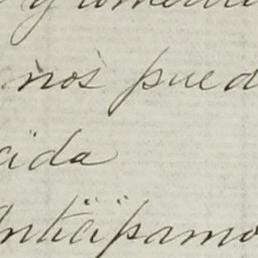 nos pued
cida
Anticipamo